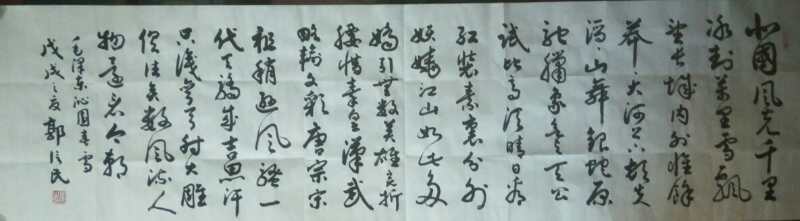 北國風光千里
冰封萬里雪飄
望長城内外惟餘
莽々大河上下頓失
滔々山舞銀蛇原
馳臘象欲與天公
試比高須晴日看
紅裝素裹分外
妖嬈江山如此多
嬌引無數英雄競折
腰惜秦皇漢武
略輸文彩唐宗宋
祖稍遜風騷一
代天驕成吉思汗
只識彎弓射大雕
俱往矣數風流人
物還看今朝
毛澤東沁園春雪
戊戌之夏郭信民